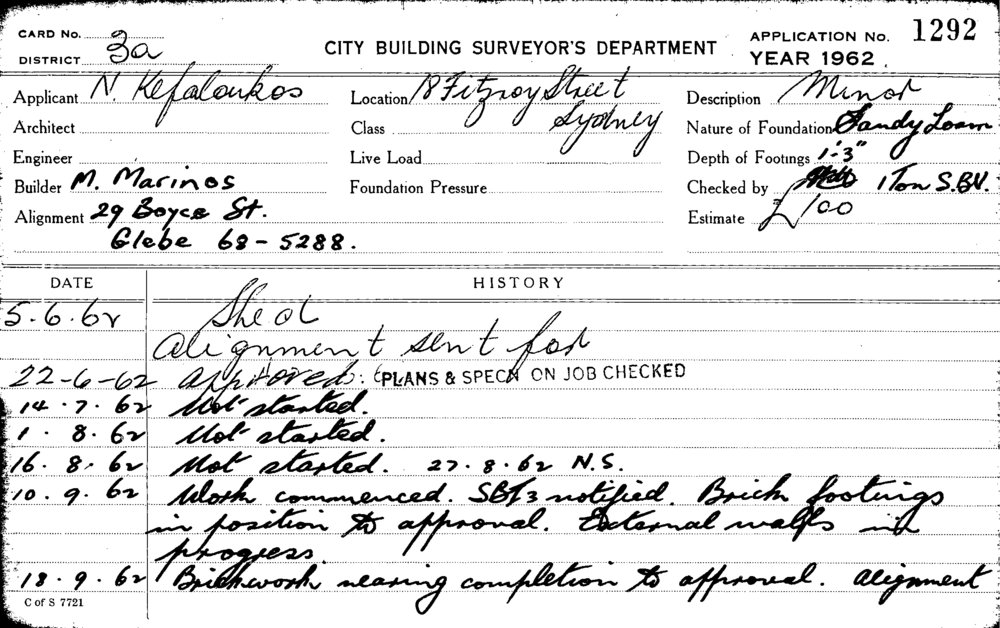 CARD No. 3a
DISTRICT
CITY BUILDING SURVEYOR'S DEPARTMENT
APPLICATION No. 1292
YEAR 1962
Applicant N. Kefaloukos
Location 18 Fitzroy Street
Sydney
Description Minor
Architect
Class
Nature of Foundation Sandy Loam
Engineer
Live Load
Depth of Footings 1'-3"
Builder M. Marinos
Foundation Pressure
Checked by 1 Ton S.B.V.
Alignment 29 Boyce St.
Glebe 68-5288.
Estimate £100
DATE HISTORY
5.6.62 Shed
alignment sent for
22-6-62 approved: PLANS & SPECN ON JOB CHECKED
14.7.62 Not started.
1.8.62 Not started.
16.8.62 Not started. 27.8.62 N.S.
10.9.62 Work commenced. notified. Brick footings
in position to approval. External walls in
progress
18.9.62 Brickwork nearing completion to approval. alignment
C of S 7721